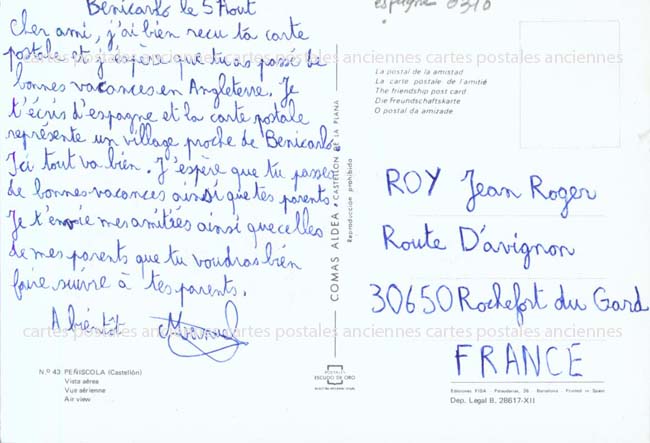 Benicarlo le 5 Aout
Cher ami, j'ai bien reçu ta carte
postale et j'espère que tu as passé de
bonnes vacances en Angleterre. Je
t'écris d'espagne et la carte postale
représente un village proche de Benicarlo.
Ici tout va bien. J'espère que tu passes
de bonnes vacances ainsi que tes parents.
Je t'envoie mes amitiées ainsi que celles
de mes parents que tu voudras bien
faire suivre à tes parents.
A bientôt Manuel
N.º 43 PEÑISCOLA (Castellón)
Vista aérea
Vue aérienne
Air view
COMAS ALDEA • CASTELLON DE LA PLANA
Reproducción prohibida
POSTALES
ESCUDO DE ORO
espagne 0310
La postal de la amistad
La carte postale de l'amitié
The friendship post card
Die Freundschaftskarte
O postal da amizade
ROY Jean Roger
Route D'avignon
30650 Rochefort du Gard
FRANCE
Ediciones FISA Palaudarias, 26 - Barcelona Printed in Spain
Dep. Legal B. 28617-XII
cartes postales anciennes cartes postales anciennes cartes postales anciennes
cartes postales anciennes cartes postales anciennes cartes postales anciennes